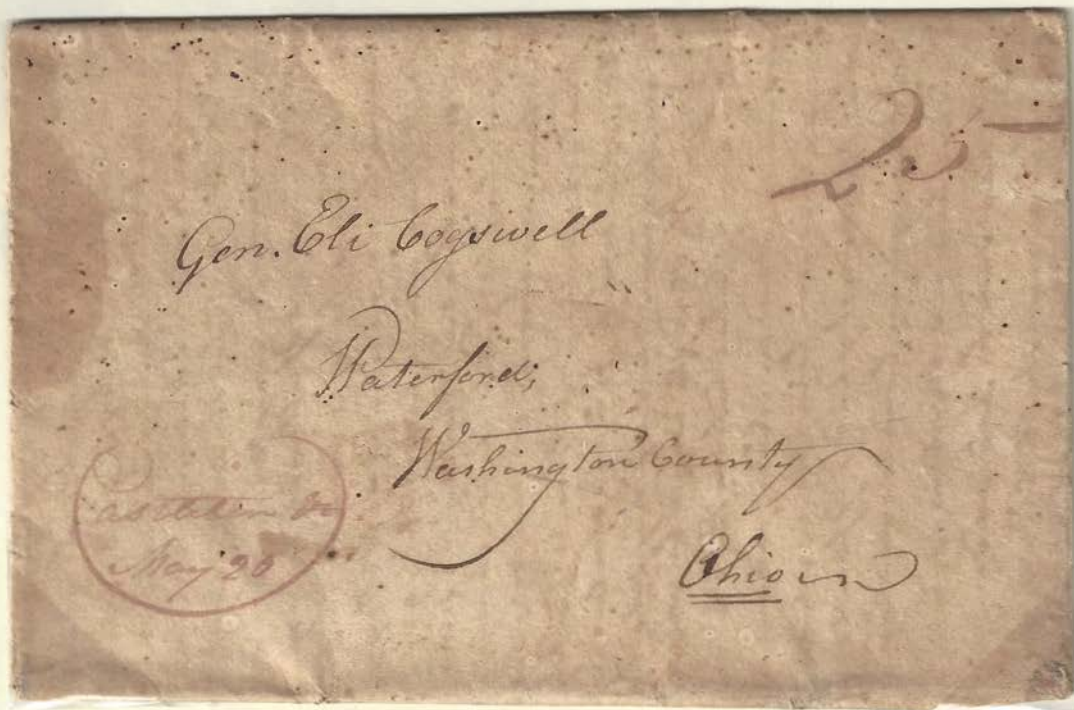 25
Gen. Eli Cogswell
Waterford,
Washington County
Ohio
Castleton
May 20